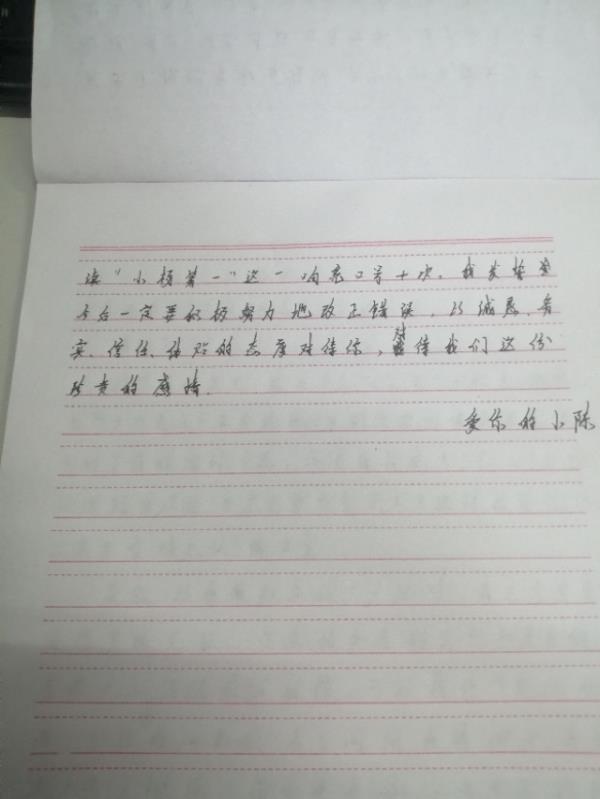 读"小杨第一"这一响亮口号十次。我发誓至
今后一定要积极努力地改正错误，以诚恳、务
实、信任、体贴的态度对待你，对待我们这份
珍贵的感情.
爱你的小陈